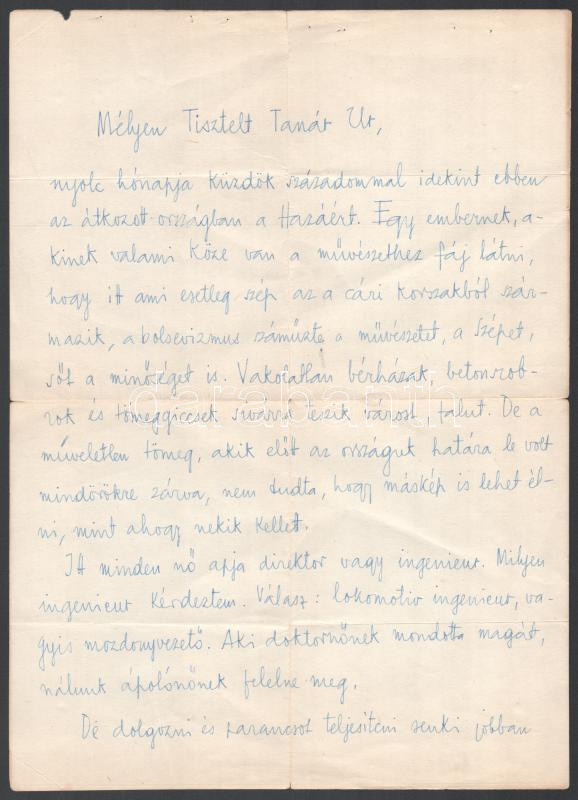 Mélyen Tisztelt Tanár Ur,
nyolc hónapja küzdök századommal idekint ebben
az átkozott országban a Hazáért. Egy embernek, a-
kinek valami köze van a művészethez fáj látni,
hogy itt ami esetleg szép az a cári korszakból szár-
mazik, a bolsevizmus száműzte a művészetet, a szépet,
sőt a minőséget is. Vakolatlan bérházak, betonszob-
rok és tömeggiccsek sivárrá teszik várost, falut. De a
műveletlen tömeg, akik előtt az országuk határa le volt
mindörökre zárva, nem tudta, hogy máskép is lehet él-
ni, mint ahogy nekik kellett.
Itt minden nő apja direktor vagy ingenieur. Milyen
ingenieur kérdeztem. Válasz: lokomotiv ingenieur, va-
gyis mozdonyvezető. Aki doktornőnek mondotta magát,
nálunk ápolónőnek felelne meg.
De dolgozni és parancsot teljesíteni senki jobban
darabanth